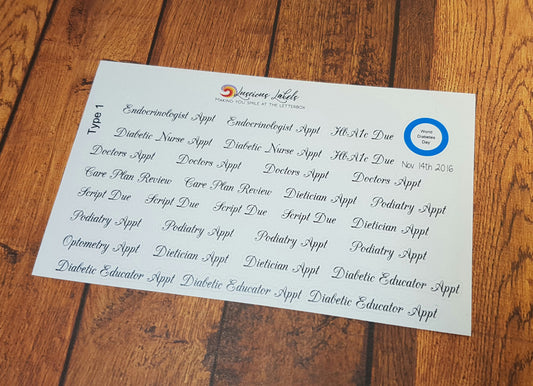 Luscious Labels
MAKING YOU SMILE AT THE LETTERBOX
Type 1
Endocrinologist Appt Endocrinologist Appt HbA1c Due
World
Diabetes
Day
Diabetic Nurse Appt Diabetic Nurse Appt HbA1c Due
Nov 14th 2016
Doctors Appt Doctors Appt Doctors Appt Doctors Appt
Care Plan Review Care Plan Review Dietician Appt Podiatry Appt
Script Due Script Due Script Due Script Due Dietician Appt
Podiatry Appt Podiatry Appt Podiatry Appt Podiatry Appt
Optometry Appt Dietician Appt Dietician Appt Diabetic Educator Appt
Diabetic Educator Appt Diabetic Educator Appt Diabetic Educator Appt